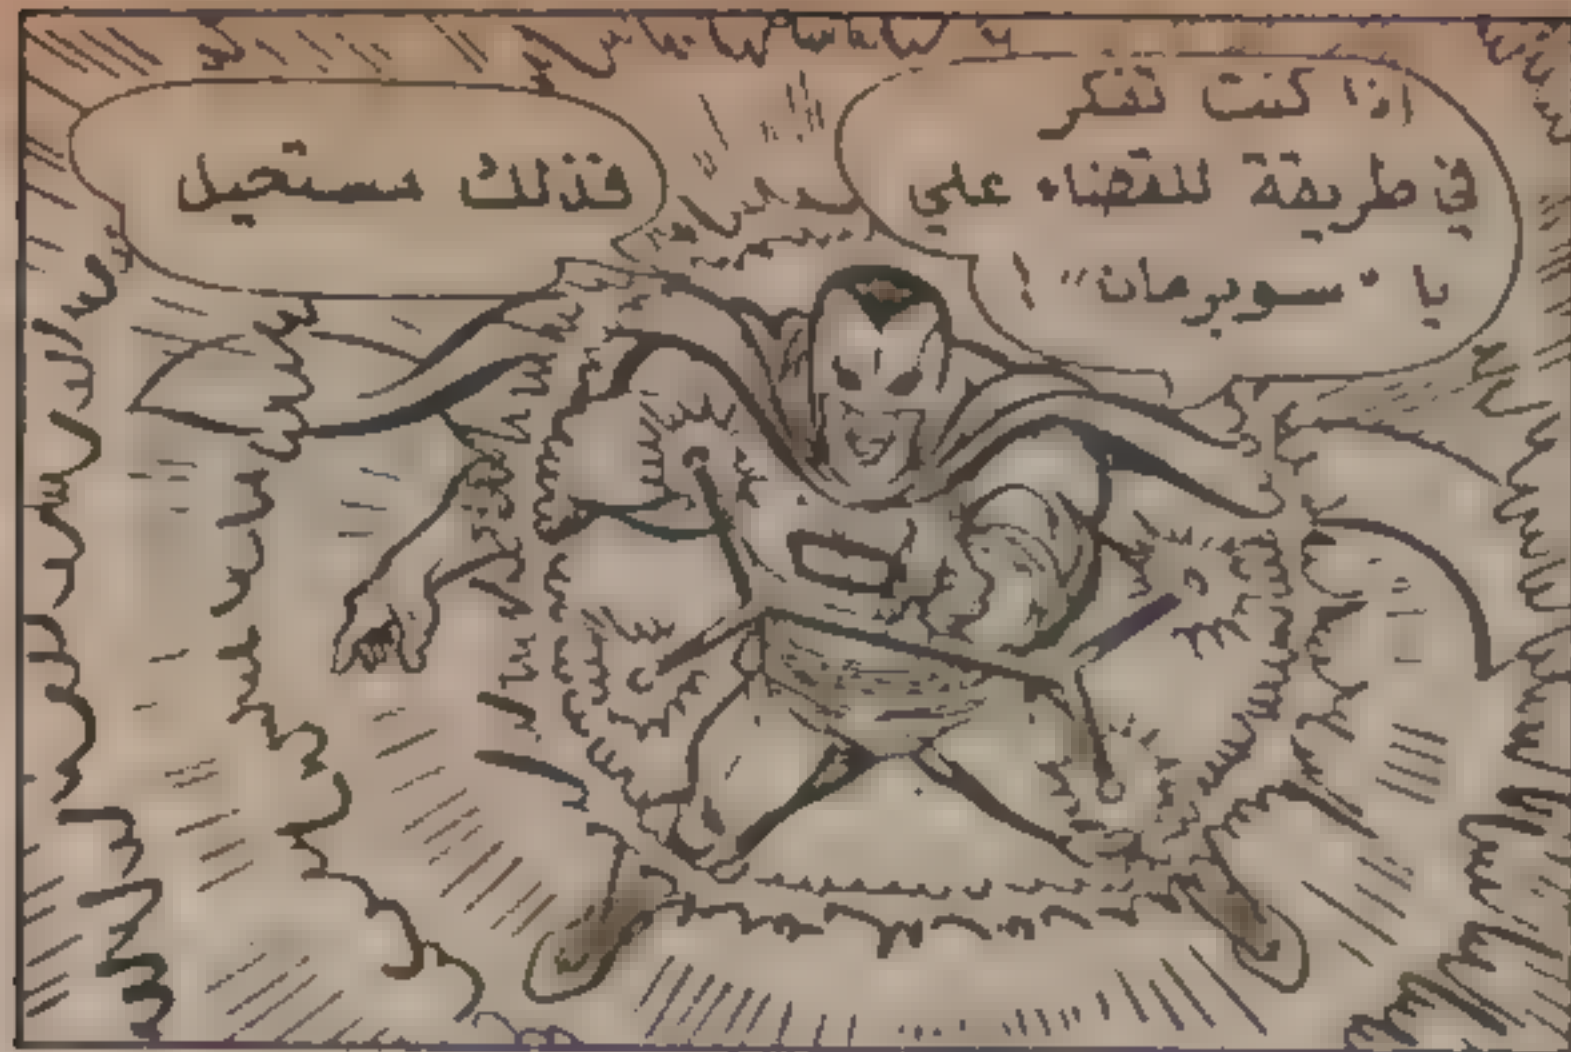 اذا كنت تفكر
في طريقة للقضاء علي
يا "سوبرمان" !
فذلك مستحيل